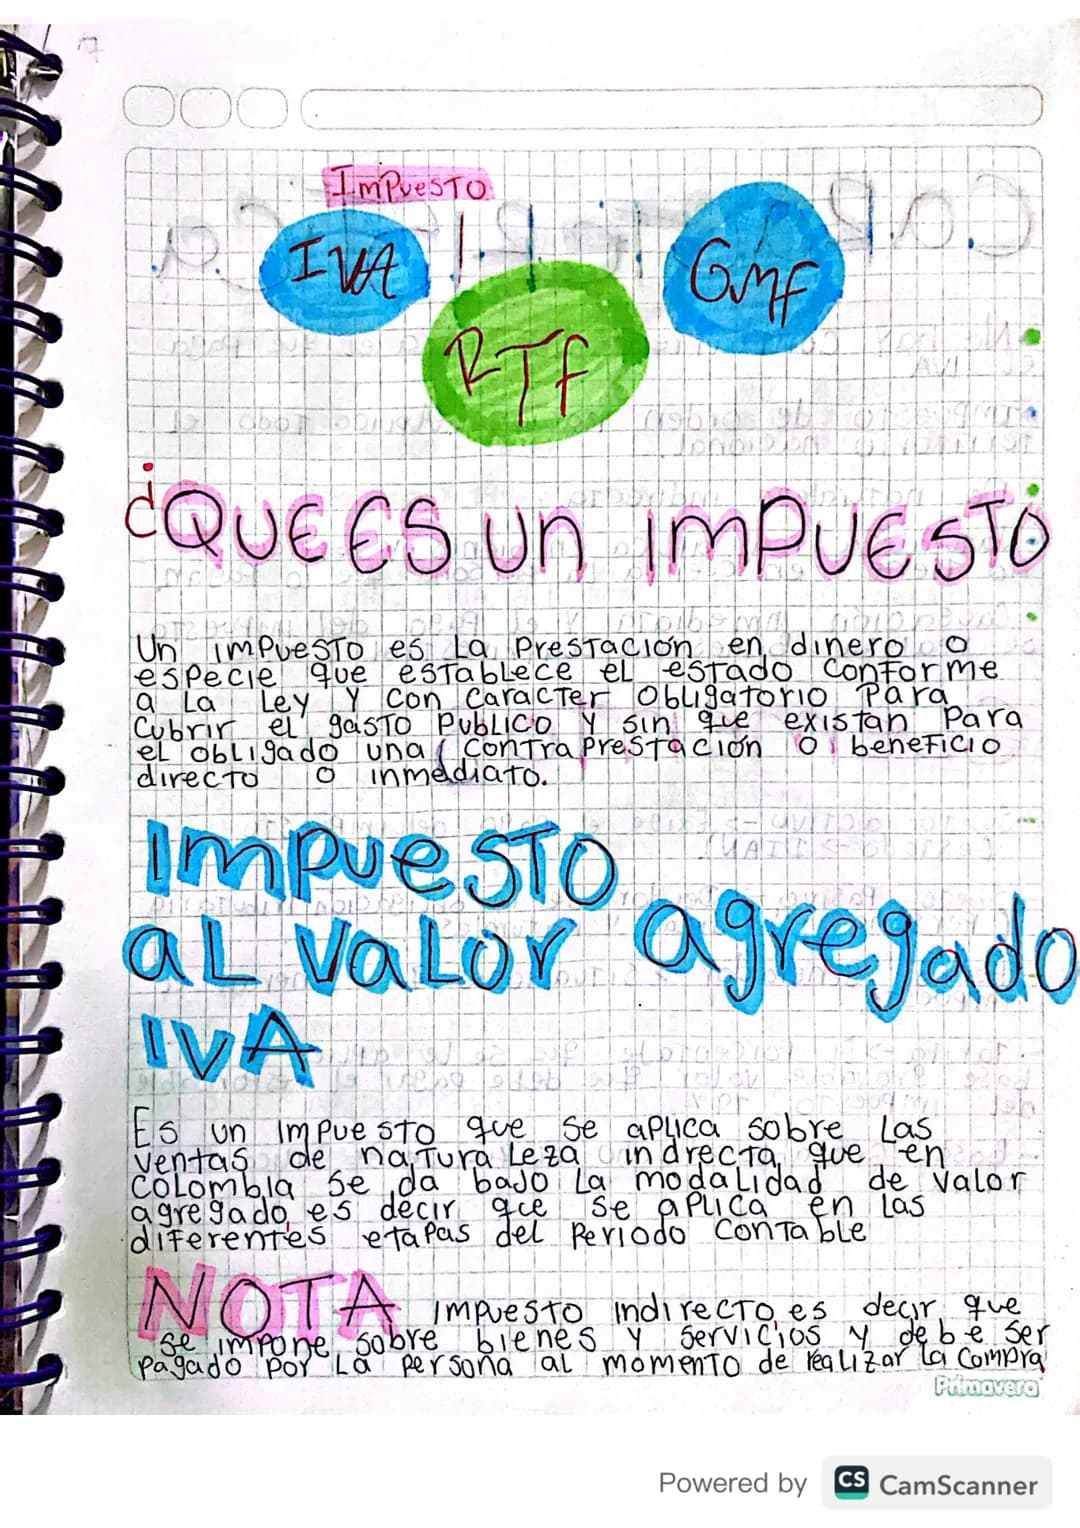 Impuesto
IVA
RTf
Gmf
¿QUE ES UN IMPUESTO
Un impuesto es La Prestación en dinero o
especie que establece el estado conforme
a La Ley y con caracter obligatorio Para
Cubrir el gasto Publico y sin que existan Para
el obligado una contra Prestación o beneficio
directo o inmediato.
IMPuesTO
aL vaLor agregado
IVA
Es un impuesto que se aplica sobre Las
ventas de naturaleza indrecta, que en
COLombia se da bajo La modalidad de valor
agregado, es decir que se aplica en las
diferentes etapas del Periodo Contable
NOTA impuesto indirecto, es decir, que
se impone sobre bienes y servicios y debe ser
Pagado por La persona al momento de realizar la compra
Primavera
Powered by CS CamScanner